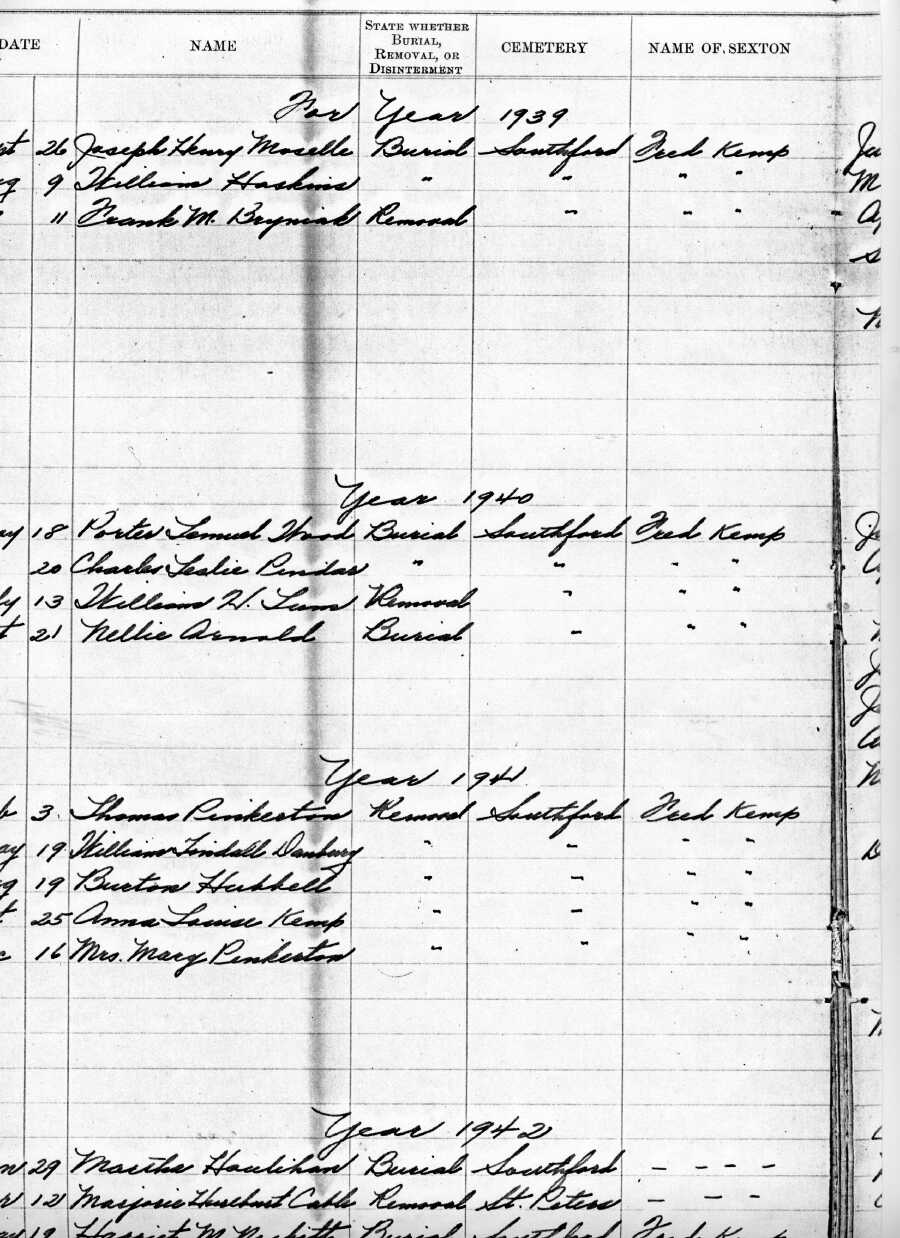 DATE NAME STATE WHETHER BURIAL, REMOVAL, OR DISINTERMENT CEMETERY NAME OF SEXTON
For Year 1939
26 Joseph Henry Moselle Burial Southford Fred Kemp
9 William Haskins " " " "
11 Frank M. Bryniak Removal " " "
Year 1940
ay 18 Porter Lemuel Wood Burial Southford Fred Kemp
20 Charles Leslie Pindar " " " "
ly 13 William H. Removal " " "
t 21 Nellie Arnold Burial " " "
Year 1941
b 3. Thomas Pinkerton Removal Southford Fred Kemp
ay 19 William Tindall Danbury " " " "
g 19 Burton Hubbell " " " "
t 25 Anna Louise Kemp " " " "
c 16 Mrs. Mary Pinkerton " " " "
Year 1942
n 29 Martha Houlihan Burial Southford – – – –
r 12 Marjorie Hurlburt Cable Removal St. Peters – – – –
ay 19 Harriet M. Burial Southford Fred Kemp